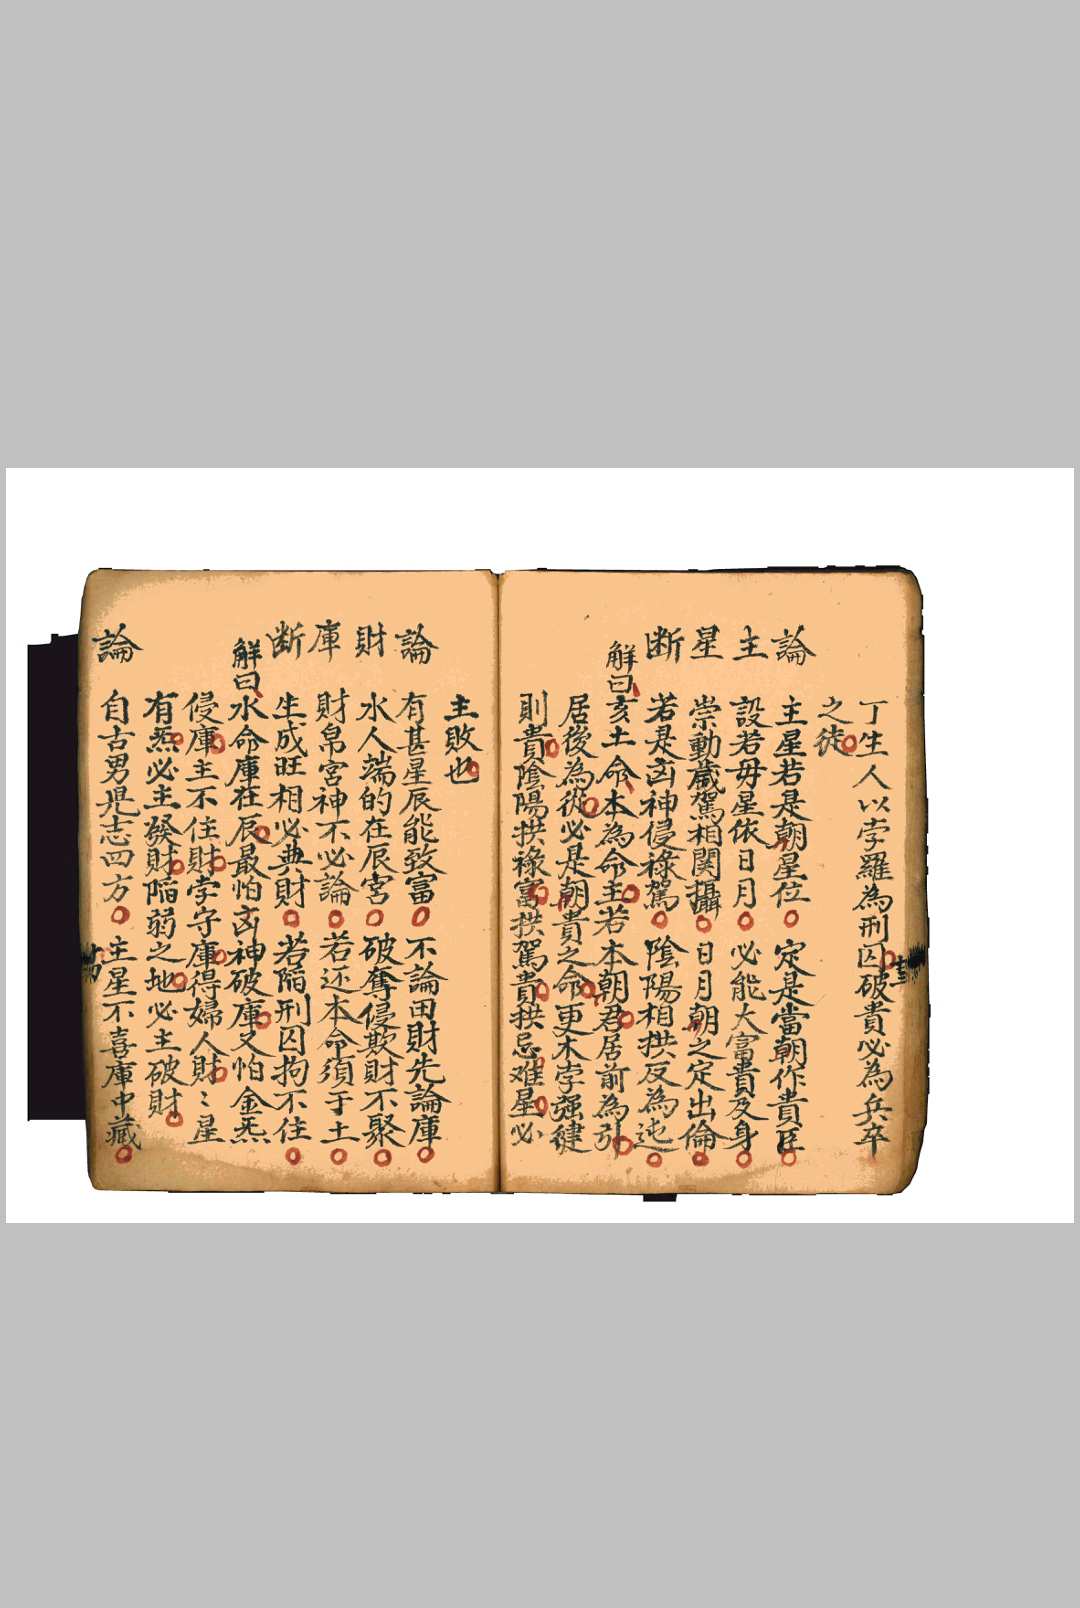 丁生人以孛羅為刑囚破貴必為兵卒
之徒
論主星断
主星若是朝星位 定是當朝作貴臣
設若毋星依日月 必能大富貴及身
崇動歲駕相関攝 日月朝之定出倫
若是凶神侵祿駕 陰陽相拱反為迍
解曰亥土命本為命主若本朝君居前為引
居後為從必是朝貴之命更木孛強健
則貴陰陽拱祿富拱駕貴拱忌难星必
主敗也
論財庫断
有甚星辰能致富 不論田財先論庫
水人端的在辰宮 破奪侵欺財不聚
財帛宮神不必論 若还本命須于土
生成旺相必典財 若陷刑囚拘不住
解曰水命庫在辰最怕凶神破庫又怕金炁
侵庫主不住財孛守庫得婦人財〻星
有炁必主發財陷弱之地必主破財
論
自古男児志四方 主星不喜庫中藏